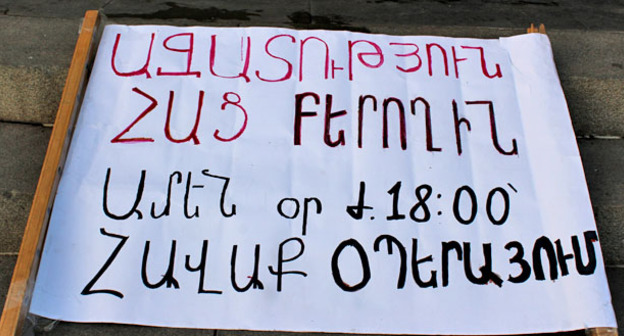 ԱԶԱՏՈՒԹՅՈՒՆ
ՀԱՑ ԲԵՐՈՂԻՆ
ԱՄԵՆ օր ժ. 18:00՝
ՀԱՎԱՔ ՕՊԵՐԱՅՈՒՄ